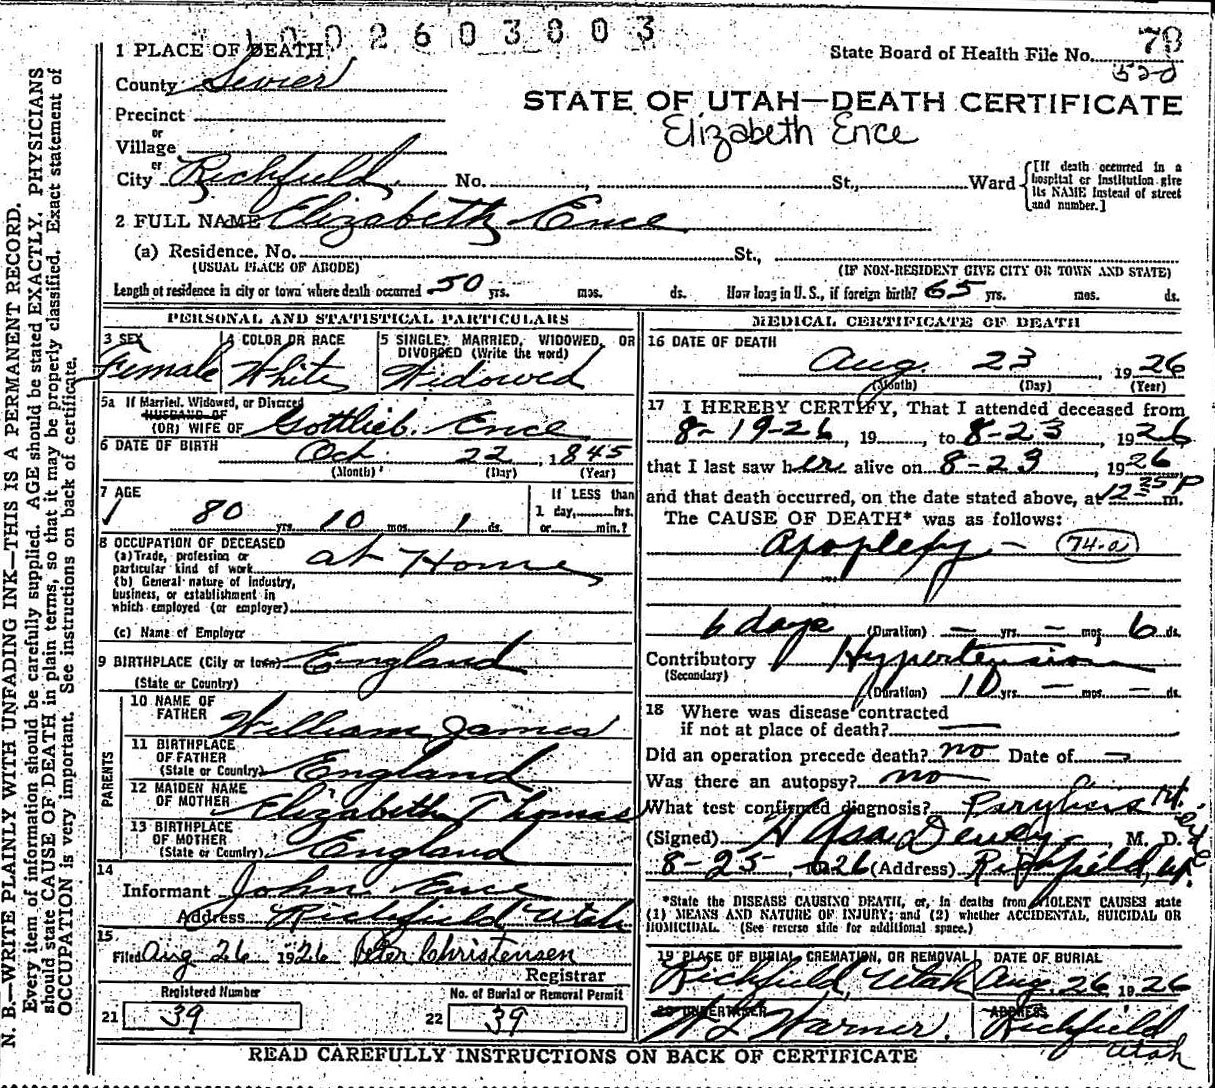 002603803
1 PLACE OF DEATH
State Board of Health File No. 78
520
County Sevier
STATE OF UTAH—DEATH CERTIFICATE
Precinct
Elizabeth Ence
or
Village
or
City Richfield No. St., Ward
[If death occurred in a hospital or institution give its NAME instead of street and number.]
2 FULL NAME Elizabeth Ence
(a) Residence. No. St.,
(USUAL PLACE OF ABODE) (IF NON-RESIDENT GIVE CITY OR TOWN AND STATE)
Length of residence in city or town where death occurred 50 yrs. mos. ds. How long in U. S., if foreign birth? 65 yrs. mos. ds.
PERSONAL AND STATISTICAL PARTICULARS
3 SEX 4 COLOR OR RACE 5 SINGLE, MARRIED, WIDOWED, OR
DIVORCED (Write the word)
Female White Widowed
5a If Married, Widowed, or Divorced
HUSBAND OF
(OR) WIFE OF Gottlieb. Ence
6 DATE OF BIRTH Oct 22, 1845
(Month) (Day) (Year)
7 AGE If LESS than
80 yrs. 10 mos. 1 ds. 1 day, hrs.
or min.?
8 OCCUPATION OF DECEASED
(a) Trade, profession or
particular kind of work at Home
(b) General nature of industry,
business, or establishment in
which employed (or employer)
(c) Name of Employer
9 BIRTHPLACE (City or town) England
(State or Country)
PARENTS
10 NAME OF
FATHER William James
11 BIRTHPLACE
OF FATHER
(State or Country) England
12 MAIDEN NAME
OF MOTHER Elizabeth Thomas
13 BIRTHPLACE
OF MOTHER
(State or Country) England
14
Informant John Ence
Address Richfield Utah
15
Filed Aug 26 1926 Peter Christensen
Registrar
Registered Number No. of Burial or Removal Permit
21 39 22 39
MEDICAL CERTIFICATE OF DEATH
16 DATE OF DEATH
Aug. 23, 1926
(Month) (Day) (Year)
17 I HEREBY CERTIFY, That I attended deceased from
8-19-26, 19 , to 8-23, 1926
that I last saw her alive on 8-23, 1926
and that death occurred, on the date stated above, at m.
The CAUSE OF DEATH* was as follows:
Apoplexy — 74-a
6 days (Duration) — yrs. — mos, 6 ds.
Contributory Hypertension
(Secondary)
(Duration) 10 yrs. — mos. — ds.
18 Where was disease contracted
if not at place of death? —
Did an operation precede death? no Date of —
Was there an autopsy? no
What test confirmed diagnosis? Parylisis rt. side
(Signed) H Asa Dewey M. D.
8-25, 1926 (Address) Richfield, Ut.
*State the DISEASE CAUSING DEATH, or, in deaths from VIOLENT CAUSES state
(1) MEANS AND NATURE OF INJURY; and (2) whether ACCIDENTAL, SUICIDAL OR
HOMICIDAL. (See reverse side for additional space.)
19 PLACE OF BURIAL, CREMATION, OR REMOVAL DATE OF BURIAL
Richfield, Utah Aug. 26, 1926
20 UNDERTAKER ADDRESS
W L Warner. Richfield
Utah
READ CAREFULLY INSTRUCTIONS ON BACK OF CERTIFICATE
N. B.—WRITE PLAINLY WITH UNFADING INK—THIS IS A PERMANENT RECORD.
Every item of information should be carefully supplied. AGE should be stated EXACTLY. PHYSICIANS
should state CAUSE OF DEATH in plain terms, so that it may be properly classified. Exact statement of
OCCUPATION is very important. See instructions on back of certificate.